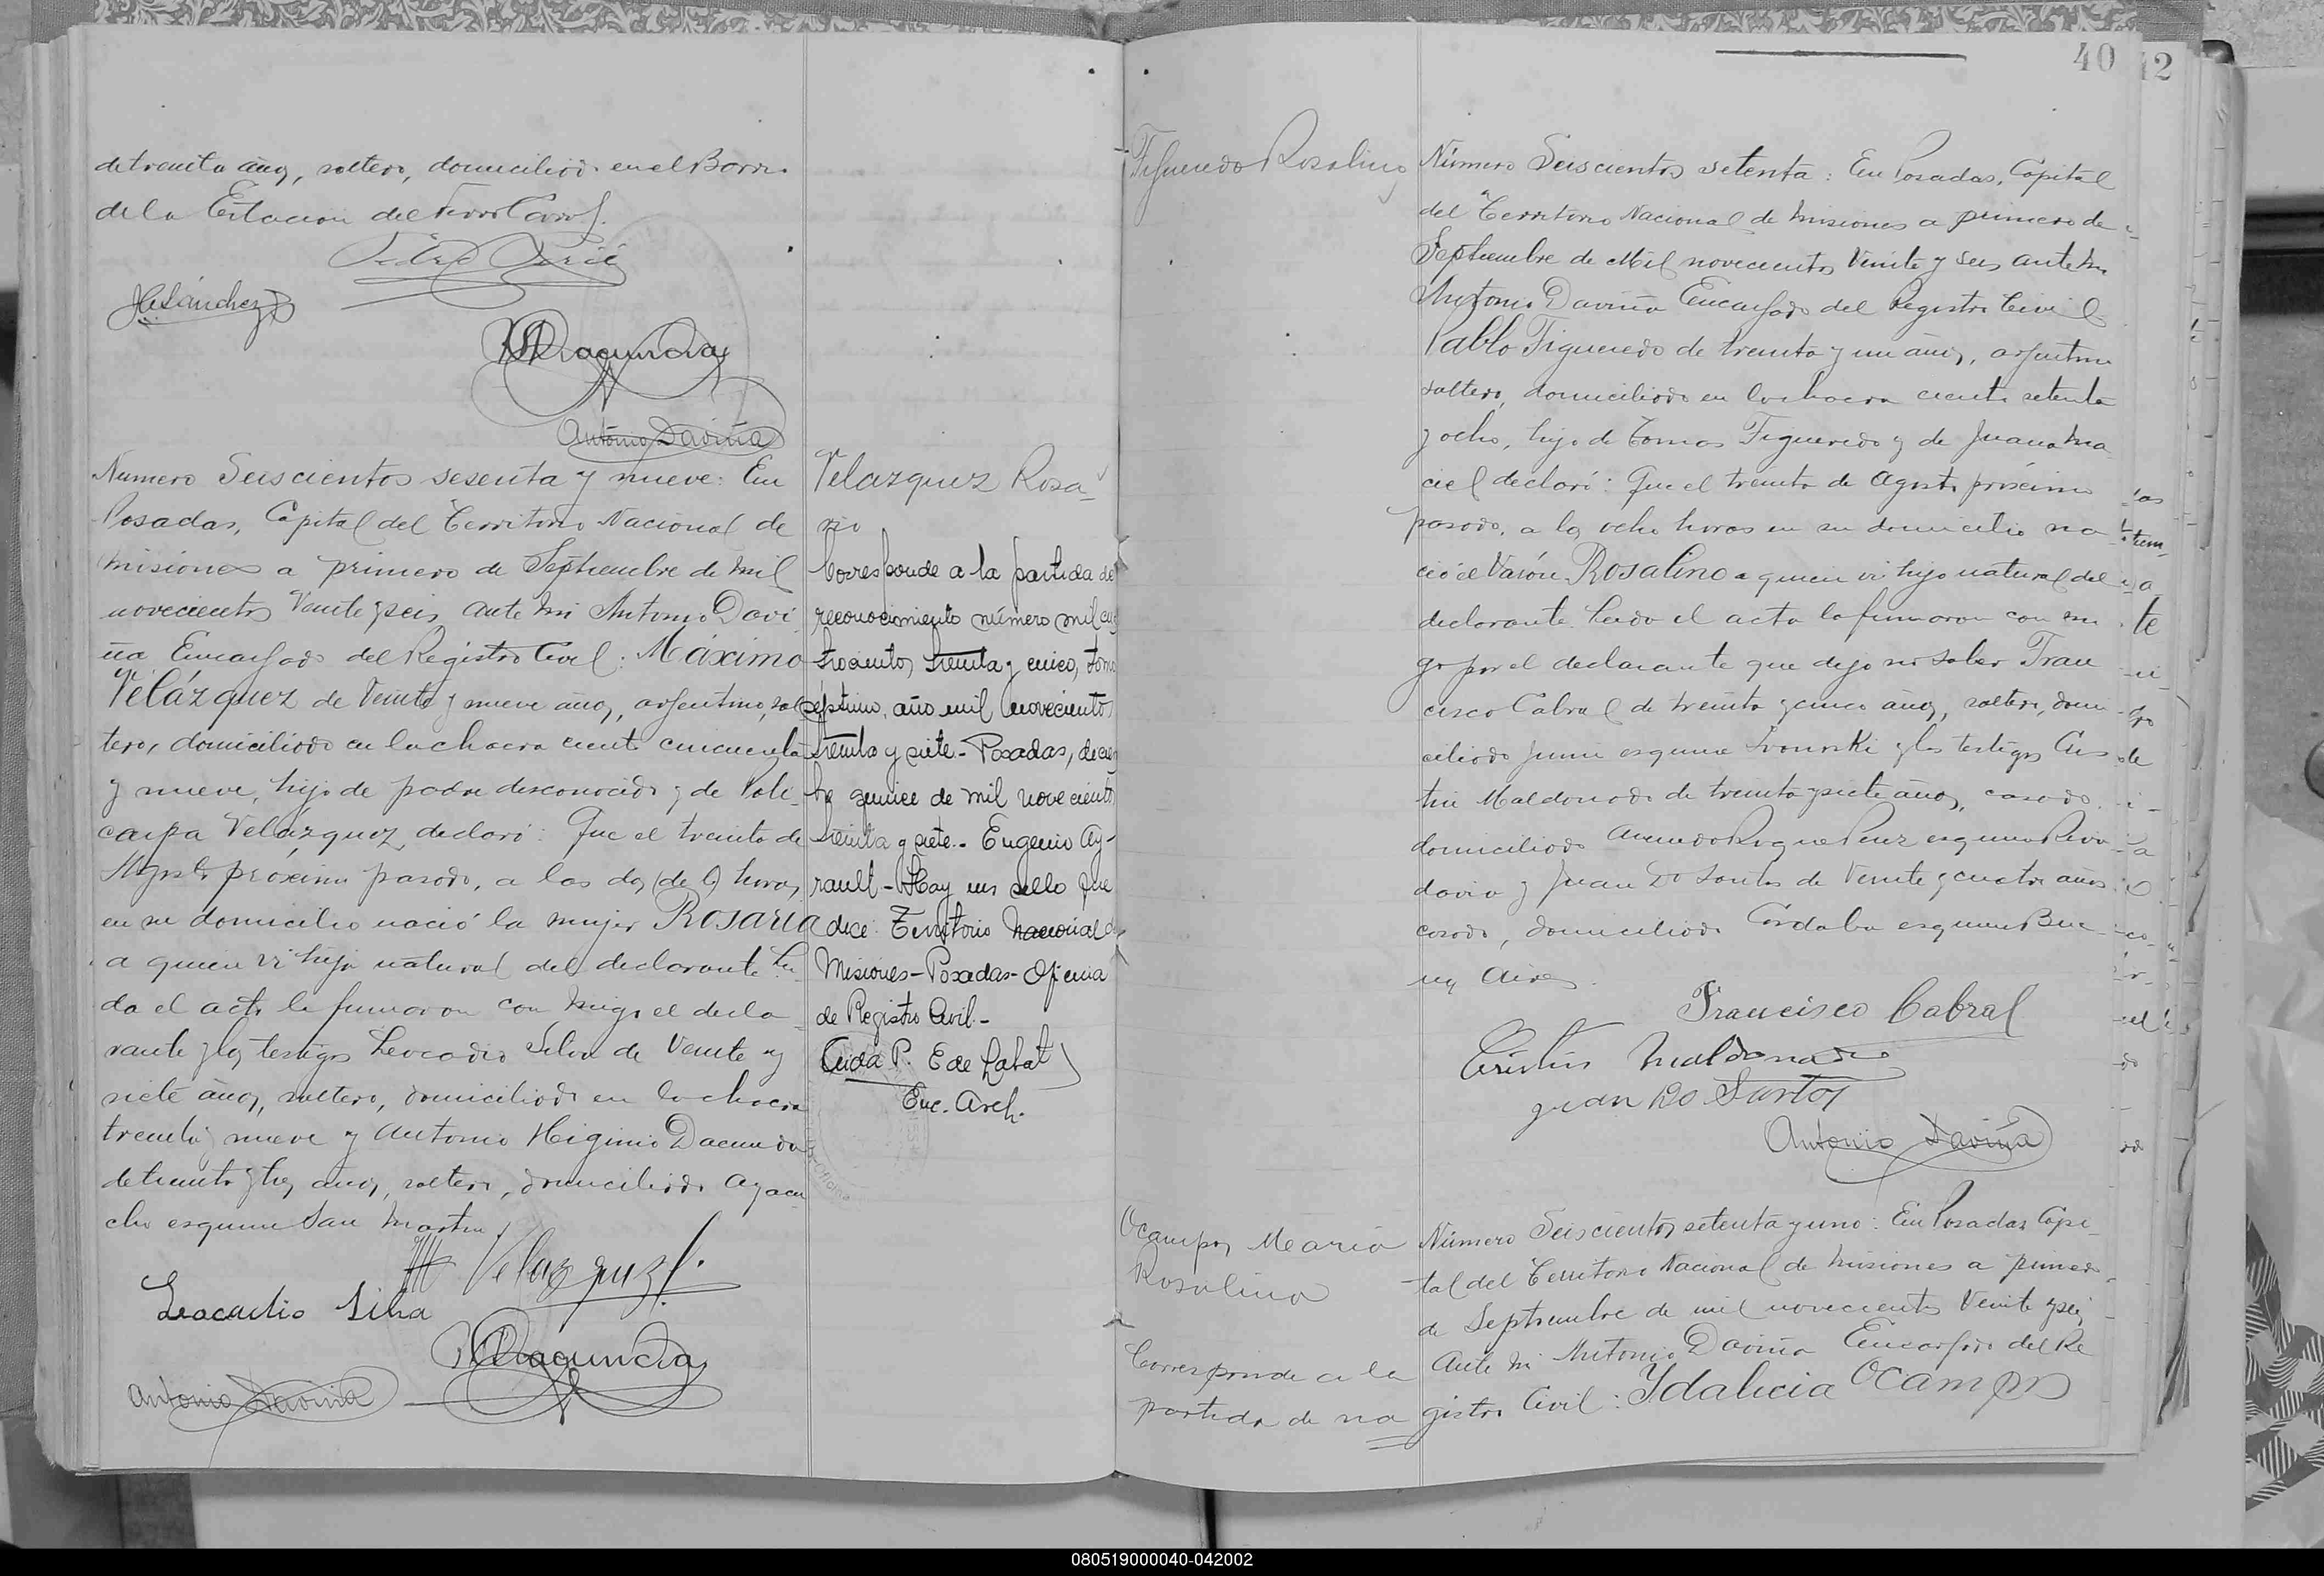 de treinta años, soltero, domiciliado en el Barrio
de la Estacion del Ferro Carril.
HSánchez
Antonio Daviña
Numero Seiscientos sesenta y nueve: En
Posadas, Capital del Territorio Nacional de
Misiones a primero de Septiembre de mil
novecientos Veinte y seis ante mi Antonio Davi
ña Encargado del Registro Civil: Máximo
Velázquez de Veinte y nueve años, argentino, sol
tero, domiciliado en la chacra ciento cincuenta
y nueve, hijo de padre desconocido y de Poli-
carpa Velazquez, declaró: Que el treinta de
Agosto próximo pasado, a las dos (de la) horas,
en su domicilio nació la mujer Rosaria
a quien vi hija natural del declarante Lei
da el acta la firmaron con migo el decla-
rante y los testigos Leocadio Silva de Veinte y
siete años, soltero, domiciliado en la chacra
treinta y nueve y Antonio Higinio Dacunda
de treinta y tres años, soltero, domiciliado Ayacu-
cho esquina San Martin.
M Velazquez
Leocadio Silva
Antonio Daviña
Velazquez Rosa-
rio
Corresponde a la partida de
reconocimiento número mil cua
trocientos treinta y cinco, tomo
séptimo, año mil novecientos
treinta y siete.- Posadas, diciem
bre quince de mil novecientos
treinta y siete.- Eugenio Ay-
rault - Hay un sello que
dice: Territorio Nacional de
Misiones - Posadas - Oficina
de Registro Civil.-
Aida P. E de Labat
Enc. Arch.
40
12
Figueredo Rosalino
Número Seiscientos setenta: En Posadas, Capital
del Territorio Nacional de Misiones a primero de
Septiembre de Mil novecientos Veinte y seis ante mi
Antonio Daviña Encargado del Registro Civil
Pablo Figueredo de treinta y un años, argentino
soltero, domiciliado en la chacra ciento setenta
y ocho, hijo de Tomas Figueredo y de Juana Ma
ciel declaró: Que el treinta de Agosto próximo
pasado, a las ocho horas en su domicilio na
ció el Varón Rosalino a quien vi hijo natural del
declarante. Leida el acta la firmaron con mi
go por el declarante que dijo no saber Fran
cisco Cabral de treinta y cinco años, soltero, domi
ciliado Junin esquina y los testigos Cris
tin Maldonado de treinta y siete años, casado
domiciliado Avenida Roque Perez esquina Riva
davia y Juan Do Santos de Veinte y cuatro años
casado, domiciliado Córdoba esquina Bue
nos Aires.
Francisco Cabral
Cristin Maldonado
Juan Do Santos
Antonio Daviña
Ocampos Maria
Rosalina
Corresponde a la
partida de na
Número Seiscientos setenta y uno: En Posadas Capi-
tal del Territorio Nacional de Misiones a primero
de Septiembre de mil novecientos Veinte y seis
Ante mi Antonio Daviña Encargado del Re
gistro Civil: Ydalicia Ocampos
080519000040-042002